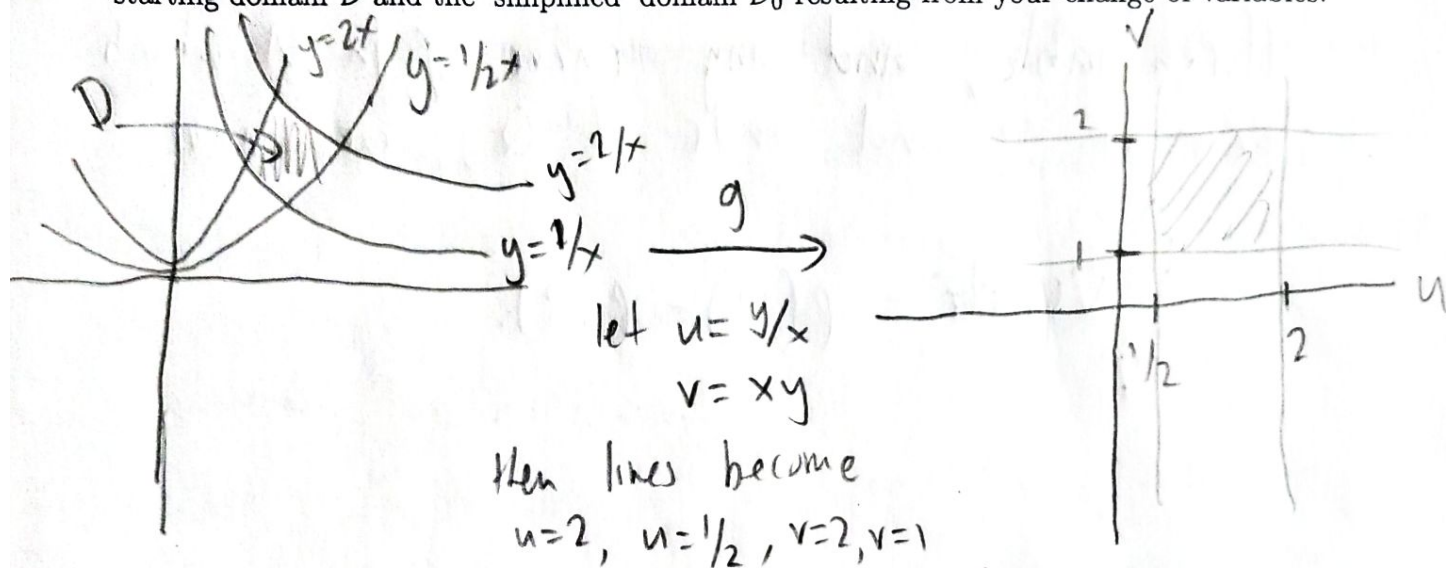 starting domain D and the "simplified" domain D₀ resulting from your change of variables.
y=2x
y=1/2x
D
y=2/x
y=1/x
g
let u= y/x
v= xy
then lines become
u=2, u=1/2, v=2, v=1
v
2
1
1/2
2
u